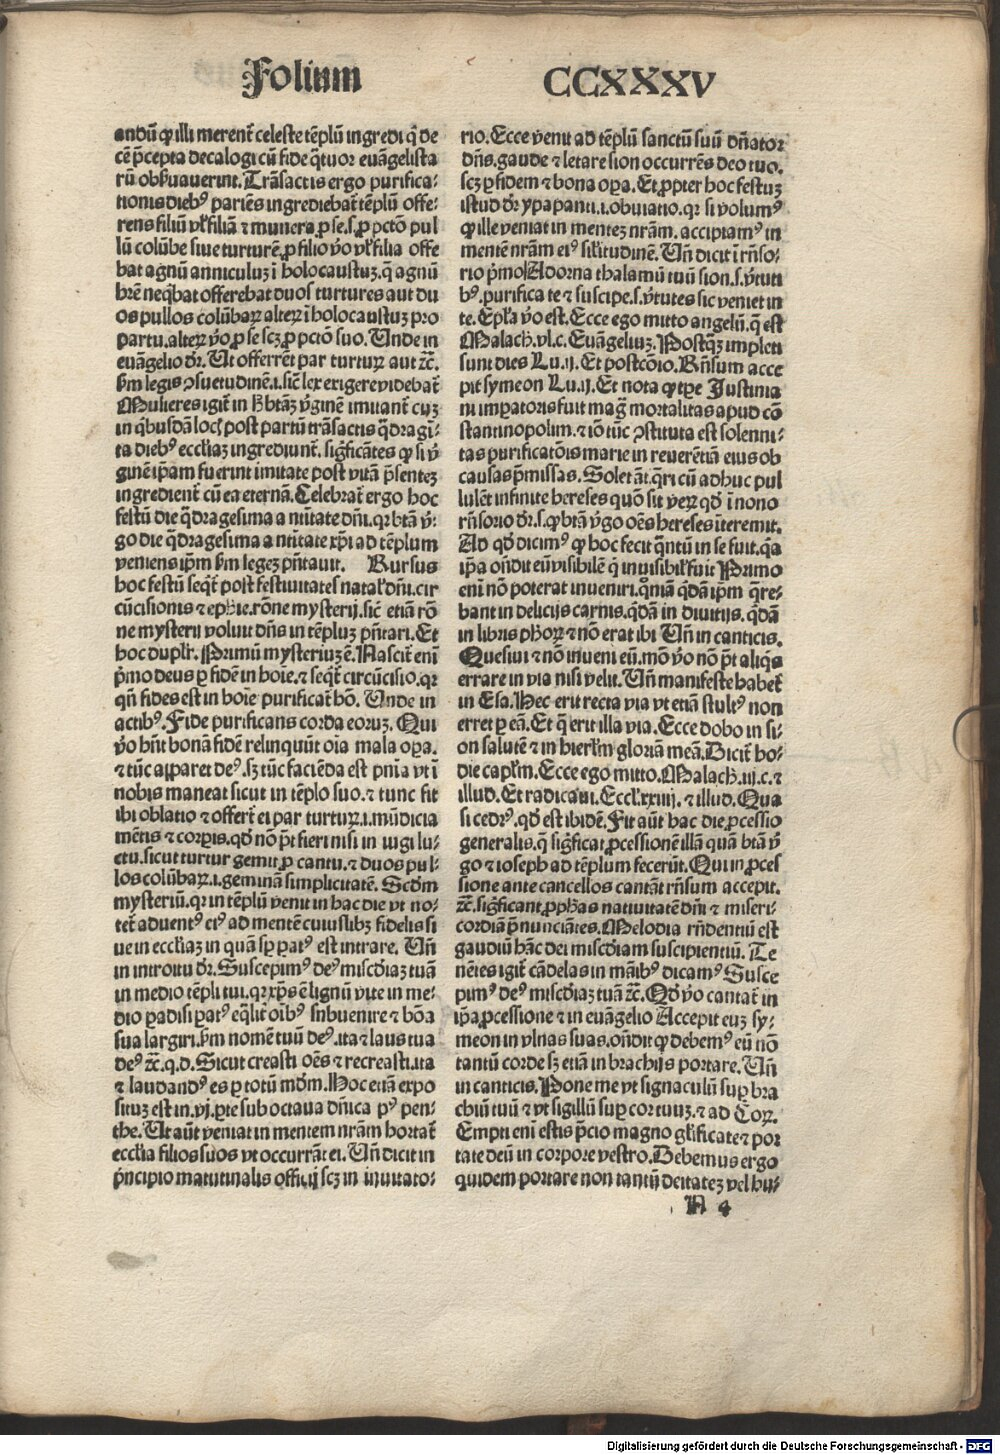 Folium CCXXXV
andū ꝙ illi merent̄ celeste tēplū ingredi q̄ de
cē p̄cepta decalogi cū fide q̄tuor euāgelista
rū obẜuauerint. Trāsactis ergo purifica⸗
tionis dieb⁹ pariēs ingrediebat̄ tēplū offe⸗
rens filiū vl̓ filiā ⁊ munera ꝓ se.s.ꝓ pctō pul
lū colūbe siue turturē.ꝓ filio v̓o vl̓ filia offe
bat agnū anniculuꝫ ī holocaustuꝫ.q̄ agnū
hr̄e neq̄bat offerebat duos turtures aut du
os pullos colūbaꝝ alteꝝ ī holocaustuꝫ pro
partu.alteꝝ v̓o ꝓ se scꝫ ꝓ pctō suo. Unde in
euāgelio dr̄. Ut offerrēt par turtuꝝ aut ꝛc̄.
ẜm legis ꝯsuetudinē.i.sic̄ lex exigere videbat̄
Mulieres igit̄ in h̓ btāꝫ v̓ginē imitant̄ cuꝫ
in q̄busdā locꝭ post partū trāsactis q̄dragī⸗
ta dieb⁹ eccl̓iaꝫ ingrediunt̄. sig̓ficātes ꝙ si v̓
ginē ip̄am fuerint imitate post vitā p̄senteꝫ
ingredient̄ cū ea eternā. Celebrat̄ ergo hoc
festū die q̄dragesima a ntītate dn̄i.qꝛ btā v̓⸗
go die q̄dragesima a ntītate xp̄i ad tēplum
veniens ip̄m ẜm legeꝫ p̄ntauit. Rursus
hoc festū seqt̄ post festiuitates natal̓ dn̄i.cir
cūcisionis ⁊ eph̓ie.rōne mysterij.sic̄ etiā rō
ne mysterij voluit dn̄s in tēpluꝫ p̄ntari. Et
hoc duplr̄. Primū mysteriuꝫ ē. Nascit̄ eni
p̄mo deus ꝑ fidē in hoīe.⁊ seqt̄ circūcisio.qꝛ
qn̄ fides est in hoīe purificat̄ hō. Unde in
actib⁹. Fide purificans corda eoruꝫ. Qui
v̓o hn̄t bonā fidē relinquūt oīa mala oꝑa.
⁊ tūc apparet de⁹.sꝫ tūc faciēda est pnīa vt ī
nobis maneat sicut in tēplo suo.⁊ tunc fit
ibi oblatio ⁊ offert̄ ei par turtuꝝ.i.mūdicia
mētis ⁊ corꝑis.qd̓ nō pt̄ fieri nisi in iugi lu⸗
ctu.sicut turtur gemit ꝓ cantu.⁊ duos pul⸗
los colūbaꝝ.i.geminā simplicitatē. Scd̓m
mysteriū.qꝛ in tēplū venit in hac die vt no⸗
tet̄ aduent⁹ ei⁹ ad mentē cuiuslibꝫ fidelis si
ue in eccl̓iaꝫ in quā sꝑ pat⁹ est intrare. Un̄
in introitu dr̄. Suscepim⁹ de⁹ miscd̓iaꝫ tuā
in medio tēpli tui.qꝛ xp̄s ē lignū vite in me⸗
dio ꝑadisi pat⁹ eq̄lit̄ oīb⁹ subuenire ⁊ bōa
sua largiri.ẜm nomē tuū de⁹.ita ⁊ laus tua
de⁹ ꝛc̄.q.d.Sicut creasti oēs ⁊ recreasti.ita
⁊ laudand⁹ es ꝑ totū mdm̄. Hoc etiā expo
situꝫ est in.vj.ꝑte sub octaua dn̄ica p⁹ pen⸗
the. Ut aūt veniat in mentem nr̄am hortat̄
eccl̓ia filios suos vt occurrāt ei. Un̄ dicit in
p̄ncipio matutinalis officij scꝫ in inuitato⸗
rio. Ecce venit ad tēplū sanctū suū dn̄ator
dn̄s.gaude ⁊ letare sion occurrēs deo tuo.
scꝫ ꝑ fidem ⁊ bona oꝑa. Et ꝓpter hoc festuꝫ
istud dr̄ ypapanti.i.obuiatio.qꝛ si volum⁹
ꝙ ille veniat in menteꝫ nr̄am.accipiam⁹ in
mentē nr̄am ei⁹ sil̓itudinē. Un̄ dicit̄ ī rn̄so⸗
rio p̄mo Adorna thalamū tuū sion.s.v̓tuti
b⁹.purifica te ⁊ suscipe.s.v̓tutes sic veniet in
te. Epl̓a v̓o est. Ecce ego mitto angelū.q̄ est
Malach̓.vl.c. Euāgeliuꝫ. Postq̄ꝫ impleti
sunt dies Lu.ij. Et postcōio. Rn̄sum acce
pit symeon Lu.ij. Et nota ꝙ tꝑe Justinia
ni imꝑatoris fuit mag̓ mortalitas apud cō
stantinopolim.⁊ iō tūc ꝯstituta est solenni⸗
tas purificatōis marie in reuerētiā eius ob
causas p̄missas. Solet āt q̄ri cū adhuc pul
lulēt infinite hereses quō sit veꝝ qd̓ ī nono
rn̄sorio dr̄.s.ꝙ btā v̓go oēs hereses īteremit.
Ad qd̓ dicim⁹ ꝙ hoc fecit q̄ntū in se fuit.q̄a
ip̄a on̄dit eū visibilē q̄ inuisibil̓ fuit Primo
eni nō poterat inueniri.qm̄ q̄dā ip̄m q̄re⸗
bant in delicijs carnis.q̄dā in diuitijs.q̄dā
in libris ph̓oꝝ ⁊ nō erat ibi Un̄ in canticis.
Quesiui ⁊ nō inueni eū.mō v̓o nō pt̄ aliq̄s
errare in via nisi velit. Un̄ manifeste habet̄
in Esa. Hec erit recta via vt etiā stult⁹ non
erret ꝑ eā. Et q̄ erit illa via. Ecce dobo in si⸗
on salutē ⁊ in hierl̓m gloriā meā. Dicit̄ ho⸗
die capl̓m. Ecce ego mitto. Malach̓.iij.c.⁊
illud. Et radicaui. Eccl̓.xxiiij.⁊ illud. Qua
si cedr⁹.qd̓ est ibidē. Fit aūt hac die ꝓcessio
generalis.q̄ sig̓ficat ꝓcessionē illā quā btā v̓
go ⁊ ioseph ad tēplum fecerūt. Qui in ꝓces
sione ante cancellos cantāt rn̄sum accepit.
ꝛc̄.sig̓ficant ꝓph̓as natiuitatē dn̄i ⁊ miseri⸗
cordiā p̄nunciātes. Melodia rn̄dentiū est
gaudiū hāc dei miscd̓iam suscipientiū. Te
nētes igit̄ cādelas in māib⁹ dicam⁹ Susce
pim⁹ de⁹ miscd̓iaꝫ tuā ꝛc̄. Qd̓ v̓o cantat̄ in
ip̄a ꝓcessione ⁊ in euāgelio Accepit euꝫ sy⸗
meon in vlnas suas.on̄dit̄ ꝙ debem⁹ eū nō
tantū corde sꝫ etiā in brachijs portare. Un̄
in canticis. Pone me vt signaculū suꝑ bra
chiū tuū ⁊ vt sigillū suꝑ cor tuuꝫ.⁊ ad Coꝝ.
Empti eni estis p̄cio magno gl̓ificate ⁊ por
tate deū in corpore vestro. Debemus ergo
quidem portare non tantū deitateꝫ vel hu⸗
N 4
Digitalisierung gefördert durch die Deutsche Forschungsgemeinschaft - DFG